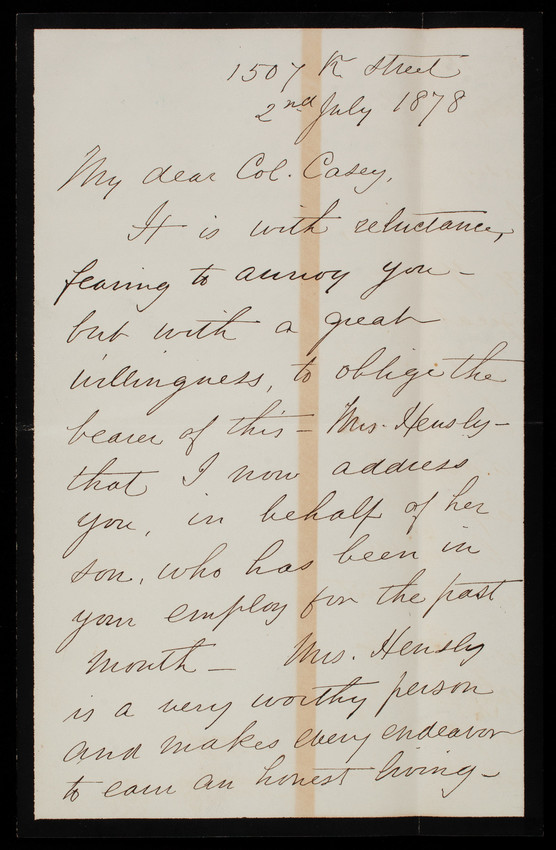 1507 K street
2nd July 1878
My dear Col. Casey,
It is with reluctance,
fearing to annoy you –
but with a great
willingness, to oblige the
bearer of this – Mrs. Hensly –
that I now address
you, in behalf of her
son, who has been in
your employ for the past
month – Mrs. Hensly
is a very worthy person
and makes every endeavor
to earn an honest living –